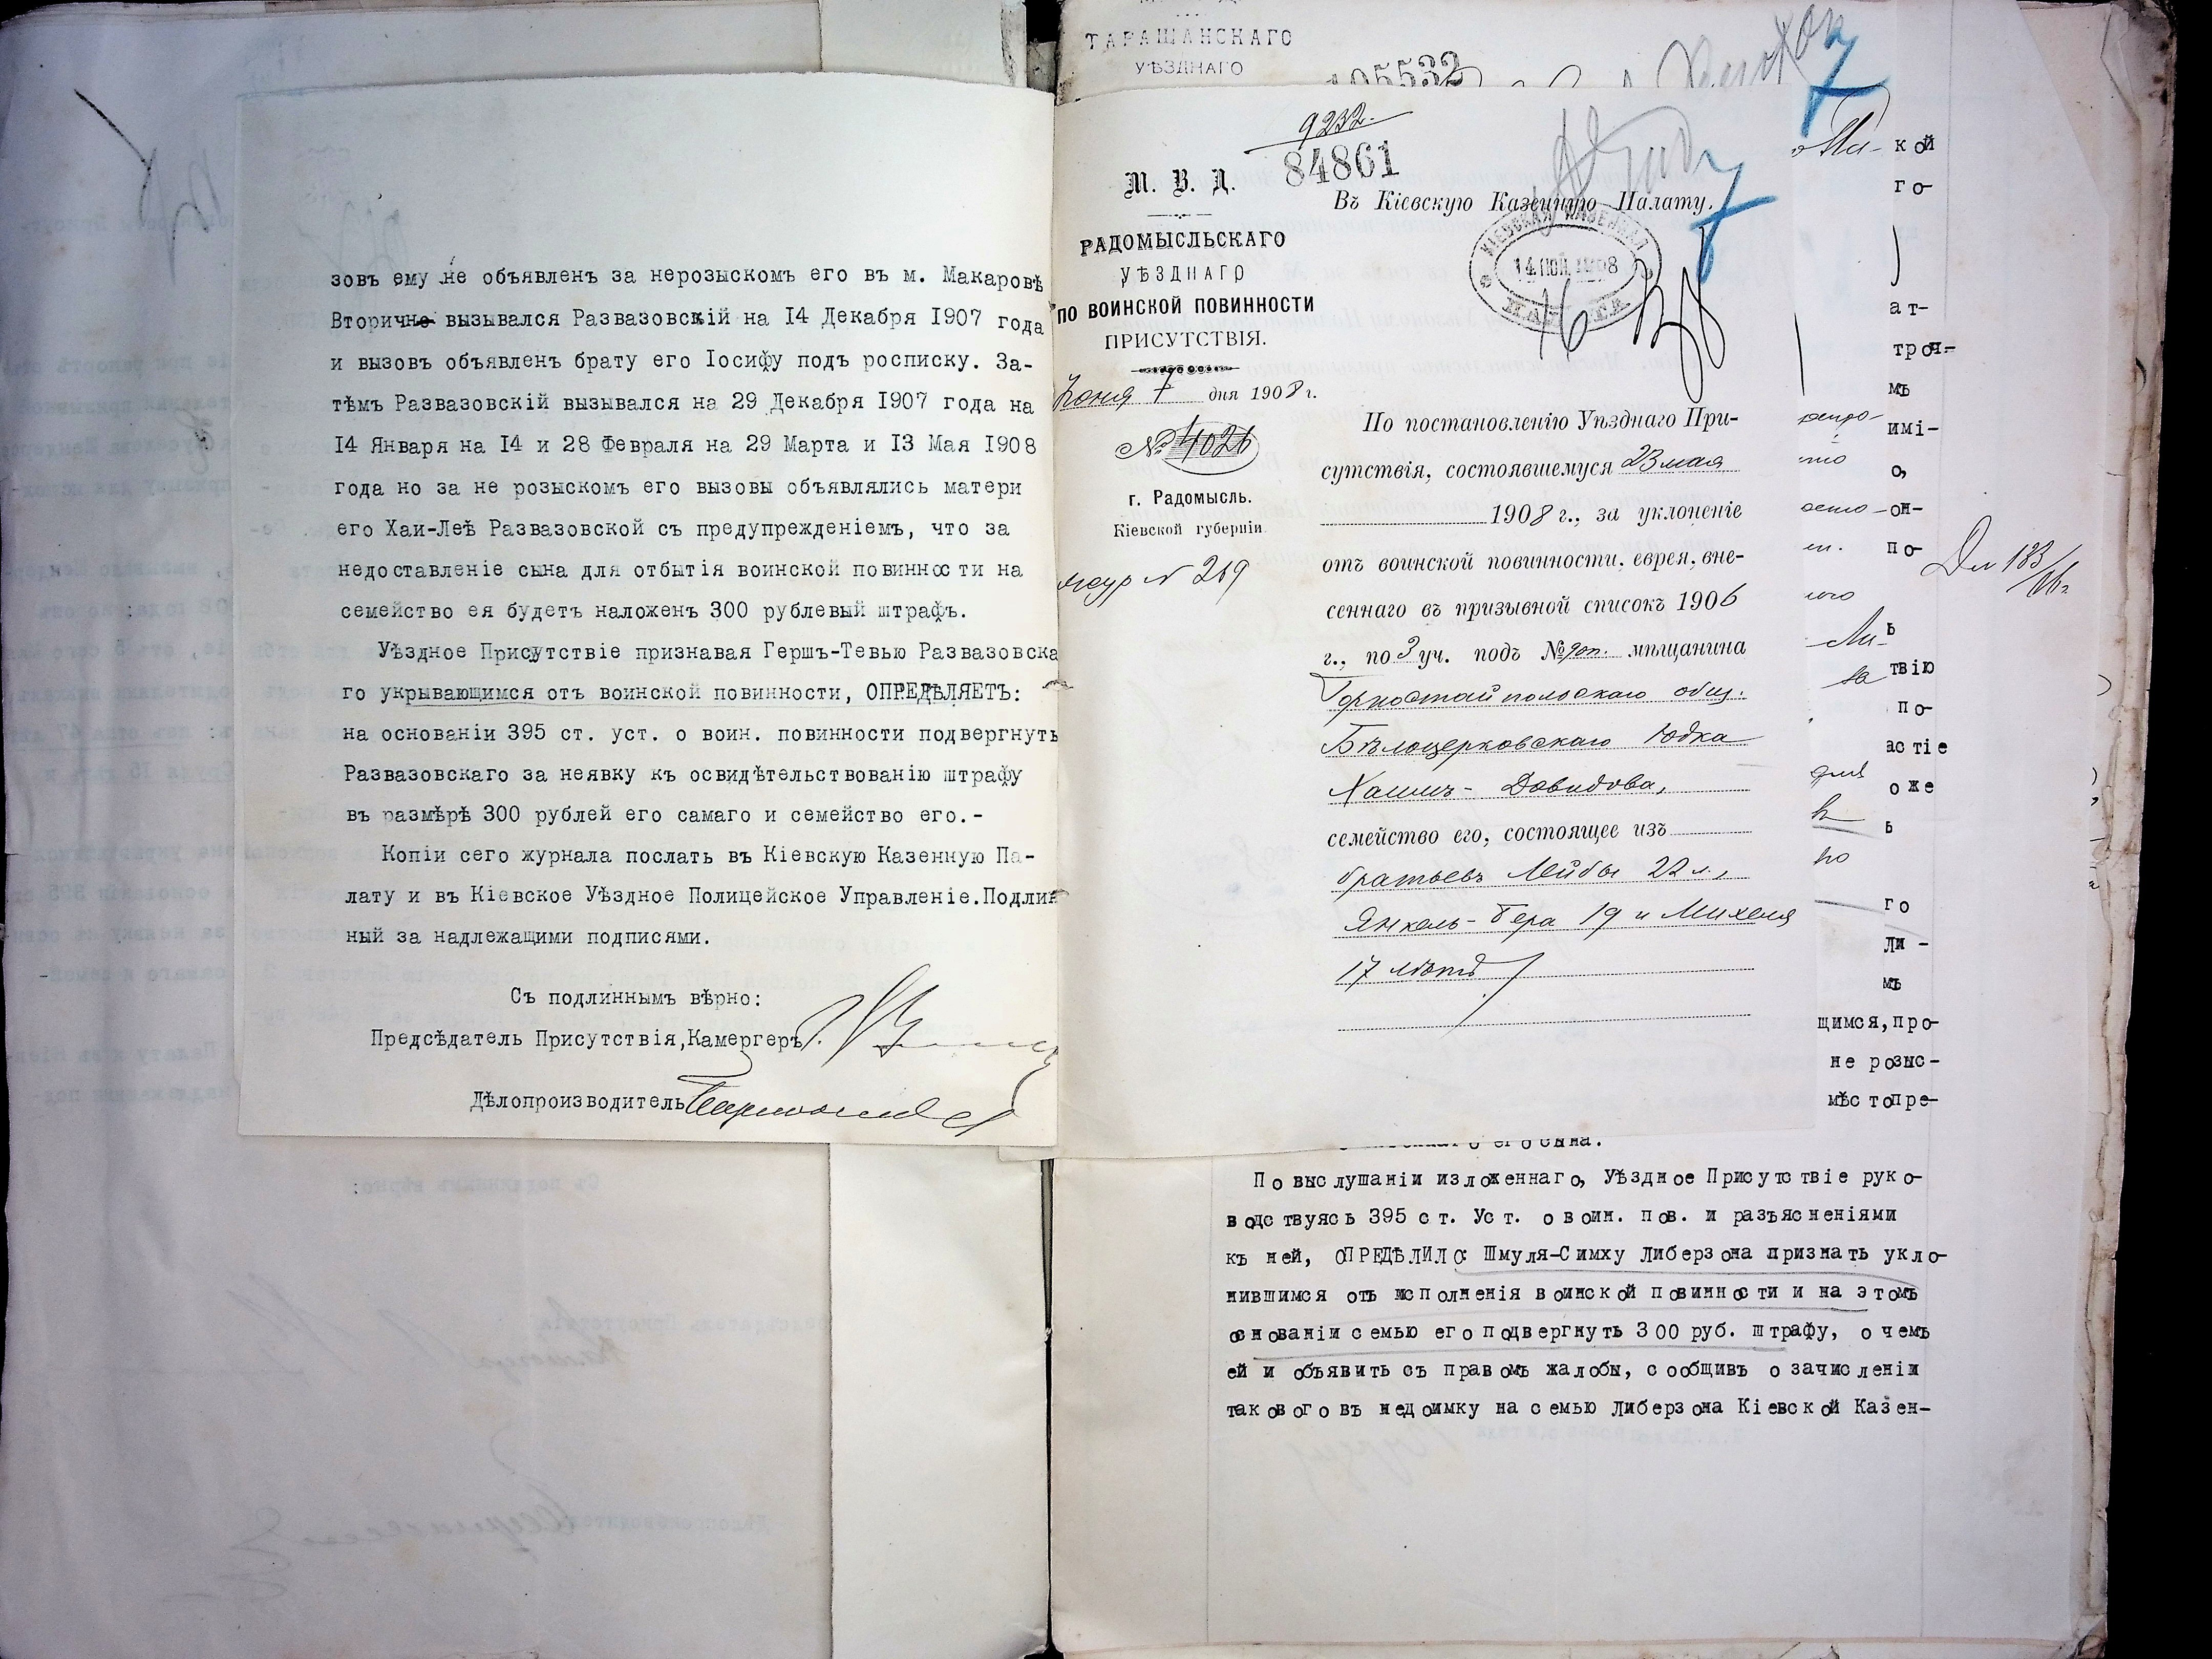 зовъ ему не объявленъ за нерозыскомъ его въ м. Макаровѣ
Вторично вызывался Развазовскій на 14 Декабря 1907 года
и вызовъ объявленъ брату его Іосифу подъ росписку. За-
тѣмъ Развазовскій вызывался на 29 Декабря 1907 года на
14 Января на 14 и 28 Февраля на 29 Марта и 13 Мая 1908
года но за не розыскомъ его вызовы объявлялись матери
его Хаи-Леѣ Развазовской съ предупрежденіемъ, что за
недоставленіе сына для отбытія воинской повинности на
семейство ея будетъ наложенъ 300 рублевый штрафъ.
Уѣздное Присутствіе признавая Гершъ-Тевью Развазовска
го укрывающимся отъ воинской повинности, ОПРЕДѢЛЯЕТЪ:
на основаніи 395 ст. уст. о воин. повинности подвергнуть
Развазовскаго за неявку къ освидѣтельствованію штрафу
въ размѣрѣ 300 рублей его самаго и семейство его.-
Копіи сего журнала послать въ Кіевскую Казенную Па-
лату и въ Кіевское Уѣздное Полицейское Управленіе.Подлин
ный за надлежащими подписями.
Съ подлиннымъ вѣрно:
Предсѣдатель Присутствія,Камергеръ
Дѣлопроизводитель
ТАРАЩАНСКАГО
УѢЗДНАГО
105532
7
9232.
84861
М. В. Д.
РАДОМЫСЛЬСКАГО
УѢЗДНАГО
ПО ВОИНСКОЙ ПОВИННОСТИ
ПРИСУТСТВІЯ.
Іюня 7 дня 1908 г.
№ 4026
г. Радомысль.
Кіевской губерніи
журн № 269
Въ Кіевскую Казенную Палату.
7
КІЕВСКАЯ КАЗЕННАЯ
14 ІЮН. 1908
ПАЛАТА
По постановленію Уѣзднаго При-
сутствія, состоявшемуся 23 мая
1908 г., за уклоненіе
отъ воинской повинности, еврея, вне-
сеннаго въ призывной списокъ 1906
г., по 3 уч. подъ № доп. мѣщанина
Горностайпольскаго общ.
Бѣлоцерковскаго Юдка
Хаимъ-Довидова,
семейство его, состоящее изъ
братьевъ Лейбы 22 л.,
Янкель-Бера 19 и Михеля
17 лѣтъ
кой
го-
ат-
троч-
мъ
имі-
о,
он-
по-
ь
твію
по-
астіе
оже
ь
го
ли-
мъ
щимся, про-
не розыс-
мѣстопре-
его сына.
По выслушаніи изложеннаго, Уѣздное Присутствіе руко-
водствуясь 395 ст. Уст. о воин. пов. и разъясненіями
къ ней, ОПРЕДѢЛИЛО: Шмуля-Симху Либерзона признать укло-
нившимся отъ исполненія воинской повинности и на этомъ
основаніи семью его подвергнуть 300 руб. штрафу, о чемъ
ей и объявить съ правомъ жалобы, сообщивъ о зачисленіи
таковаго въ недоимку на семью Либерзона Кіевской Казен-